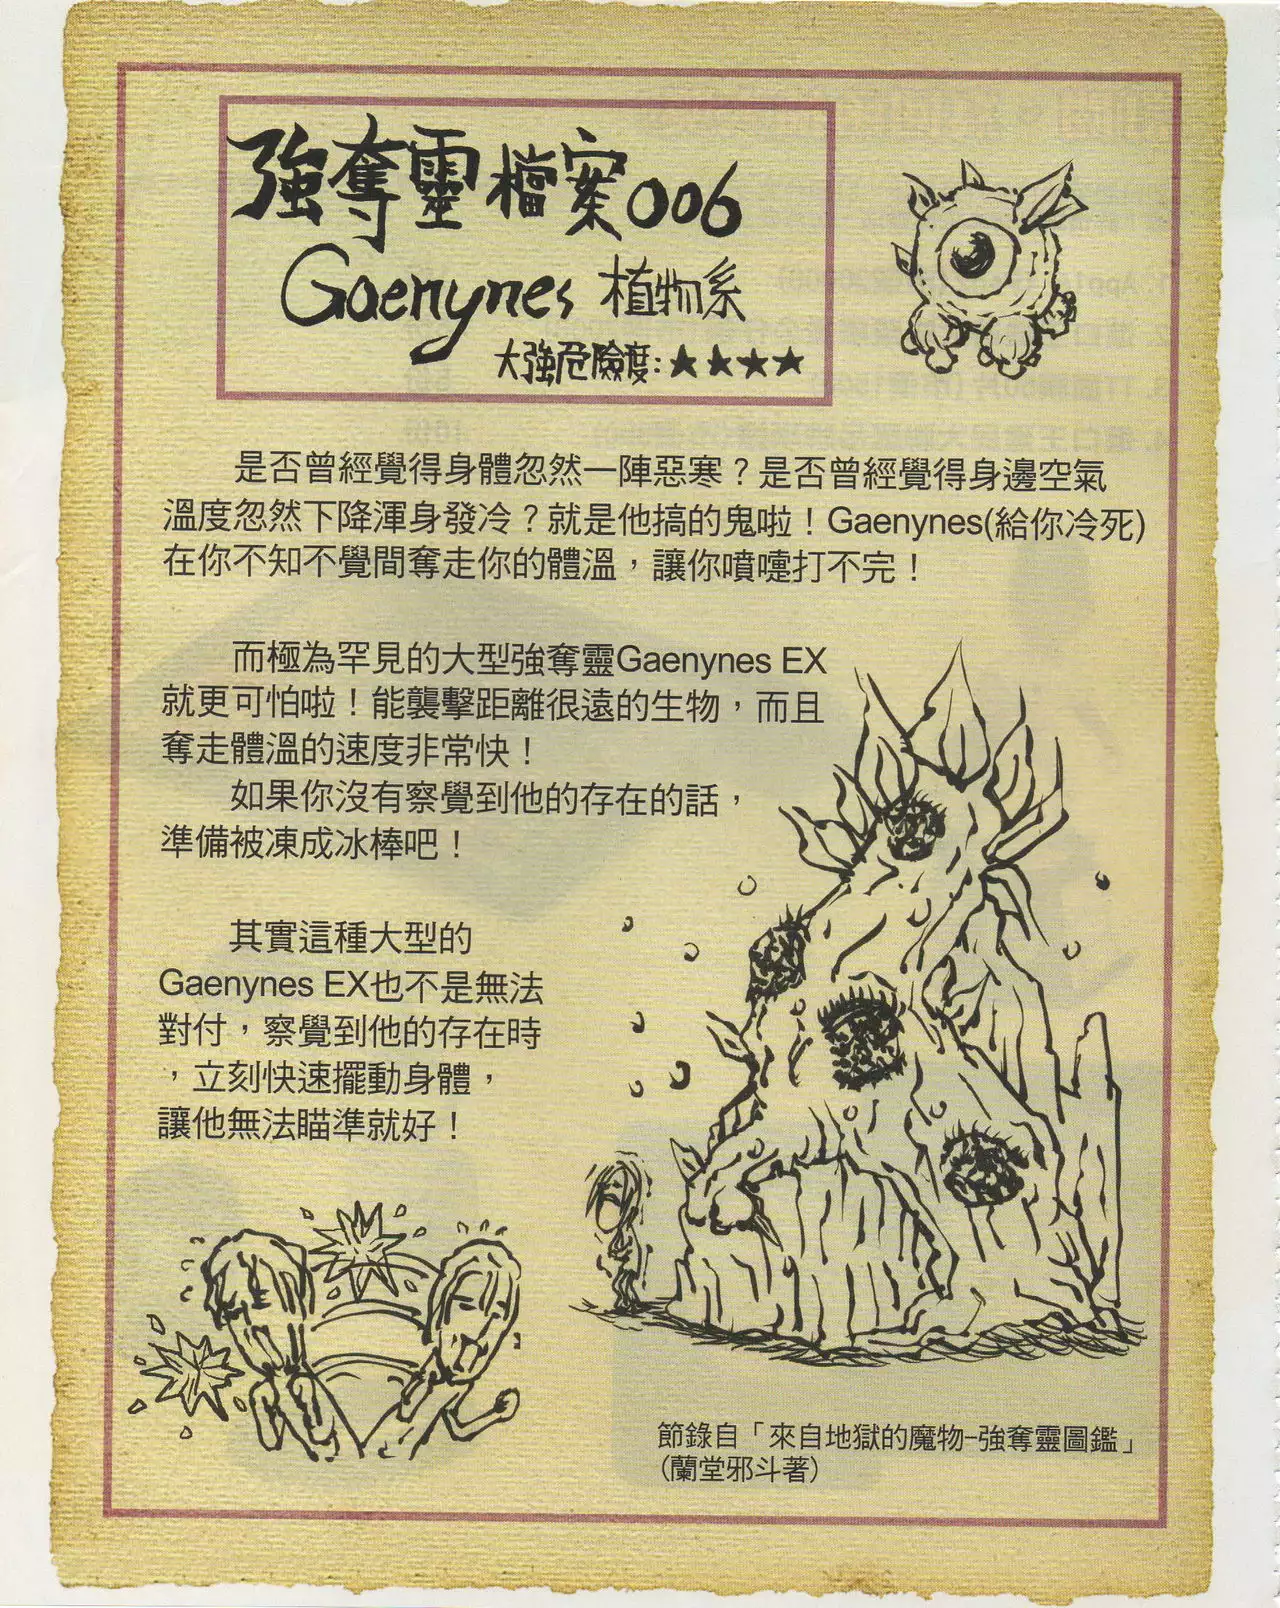 強奪靈檔案006
Gaenynes 植物系
大強危險度:★★★★
是否曾經覺得身體忽然一陣惡寒？是否曾經覺得身邊空氣
溫度忽然下降渾身發冷？就是他搞的鬼啦！Gaenynes(給你冷死)
在你不知不覺間奪走你的體溫，讓你噴嚏打不完！
而極為罕見的大型強奪靈Gaenynes EX
就更可怕啦！能襲擊距離很遠的生物，而且
奪走體溫的速度非常快！
如果你沒有察覺到他的存在的話，
準備被凍成冰棒吧！
其實這種大型的
Gaenynes EX也不是無法
對付，察覺到他的存在時
，立刻快速擺動身體，
讓他無法瞄準就好！
節錄自「來自地獄的魔物-強奪靈圖鑑」
(蘭堂邪斗著)